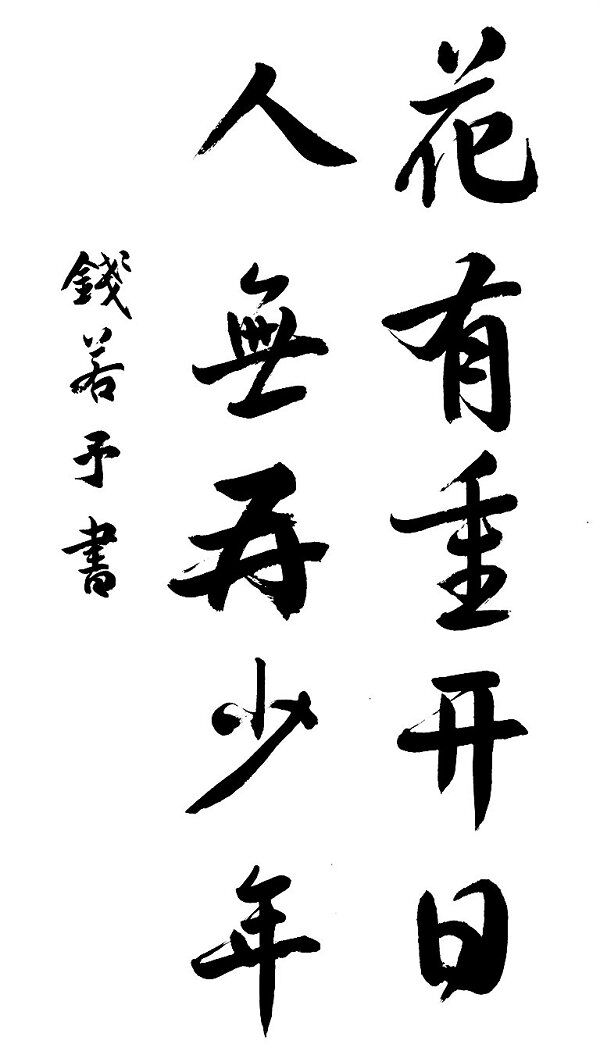 花有重开日
人無再少年
錢若予書